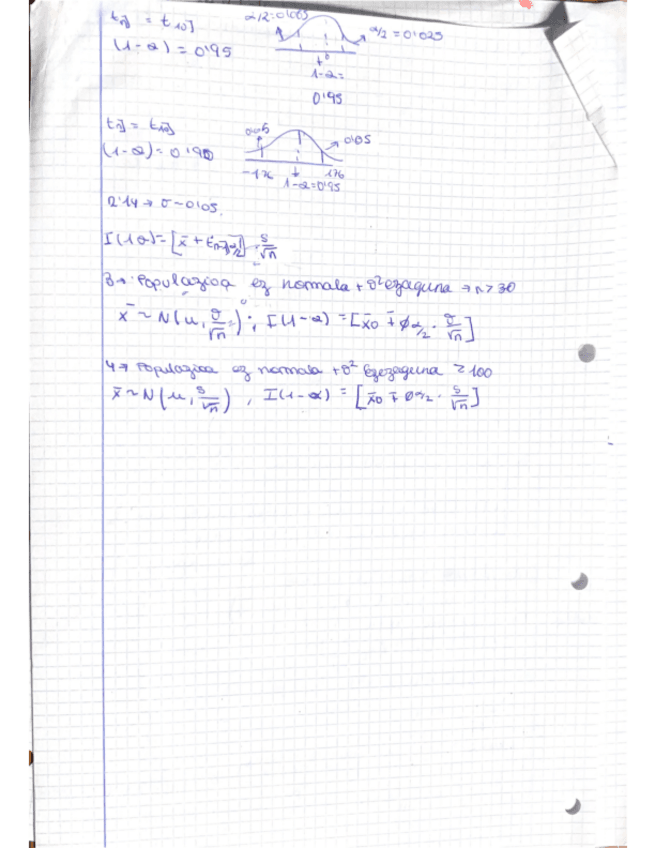 tn] = t10]
α/2=0'025
α/2 = 0'025
(1-α) = 0'95
0
1-α=
0'95
tn] = t10]
0'05
0'05
(1-α)= 0'90
-1'76
1'76
1-α=0'95
2'14 → σ-0'05.
I(1-α)=[x̄ ± tn-1]α/2] · s/√n
3→ Populazioa ez normala + σ² ezaguna → n > 30
x̄ ~ N(μ, σ/√n) ; I(1-α) = [x̄0 ∓ ϕα/2 · σ/√n]
4→ Populazioa ez normala + σ² Ezezaguna ≥ 100
x̄ ~ N(μ, s/√n) , I(1-α) = [x̄0 ∓ ϕα/2 · s/√n]